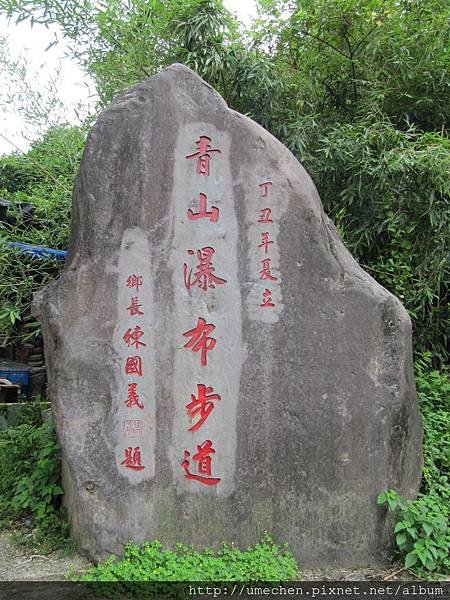 丁丑年夏立
青山瀑布步道
鄉長練國義題
http://umechen.pixnet.net/album